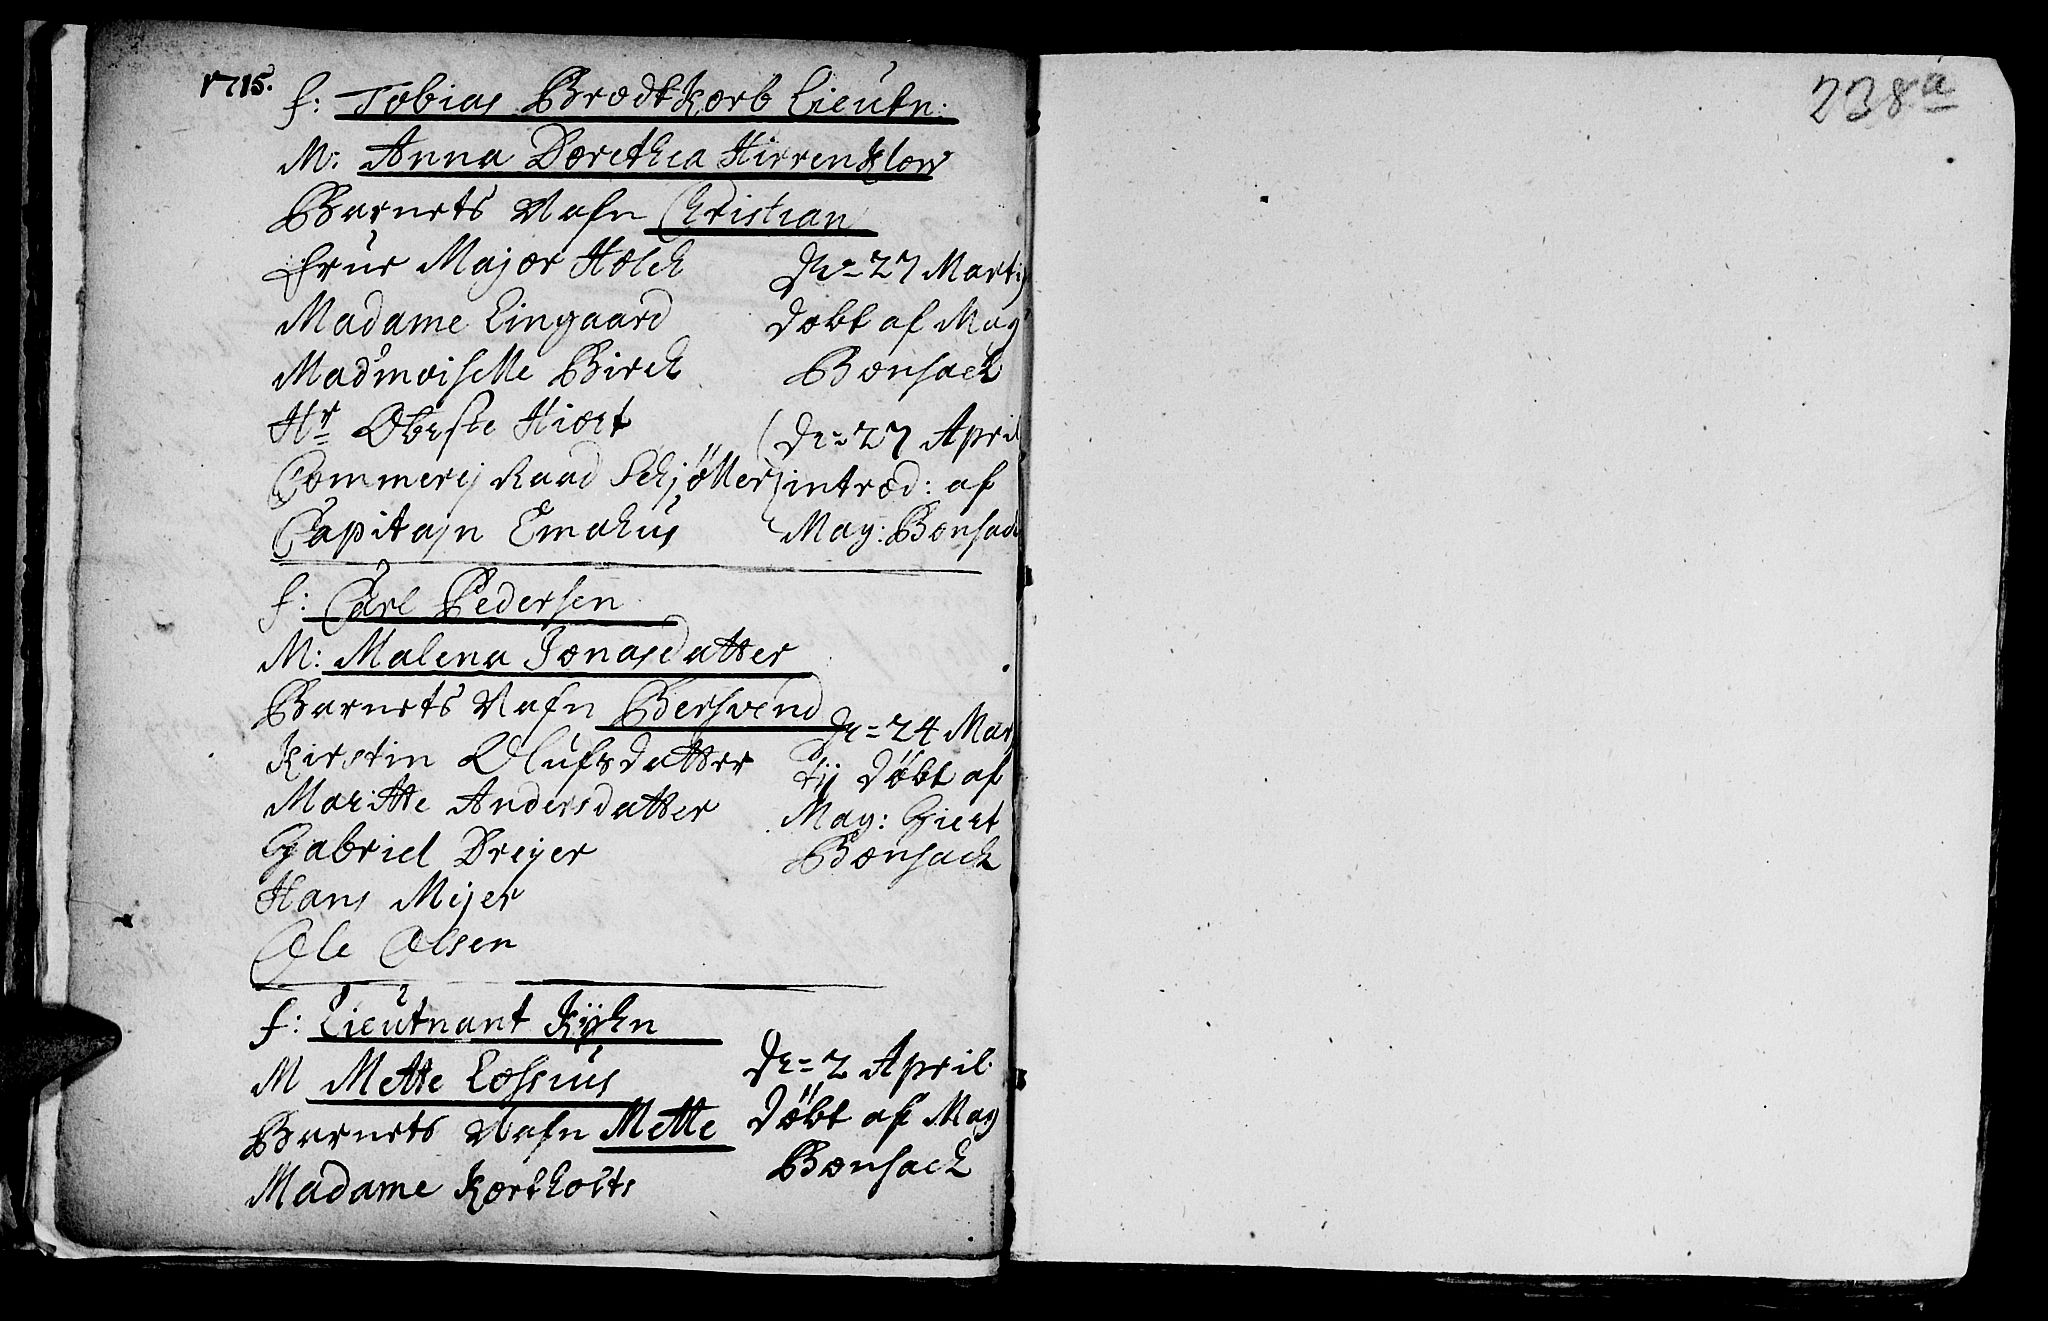 1715.
f: Tobias Brodtkorb Lieutn:
M: Anna Dorethea Hirrenklow
Barnets Nafn Christian
Frue Major Holck
Madame Lingaard
Madmoiselle Birck
Hr Obeste Hiort
Commerij Raad Schjøller
Capitajn Emahus
dn = 27 Martij
døbt af Mag
Bonsack
dn = 27 April
introd: af
Mag: Bonsack
f: Carl Pedersen
M: Malena Jonasdatter
Barnets Nafn Bersvend
Kirstin Olufsdatter
Maritte Andersdatter
Gabriel Dreyer
Hans Mijer
Ole Olsen
dn = 24 Mar
tij døbt af
Mag: Giert
Bonsack
f: Lieutnant Kÿhn
M Mette Lossius
Barnets Nafn Mette
Madame Kortholts
dn = 2 April
døbt af Mag
Bonsack
238a